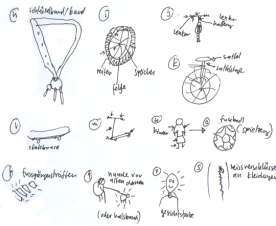 h
schlüsselband/band
i
reifen
speichen
felge
j
lenker
k
sattel
sattelstange
l
skateboard
m
n
o
fussball
(spielzeug)
p
fussgängerstreifen
q
hunde von
alten damen
(oder halsband)
r
gesichtsfarbe
s
reissverschlüsse
an kleidungen